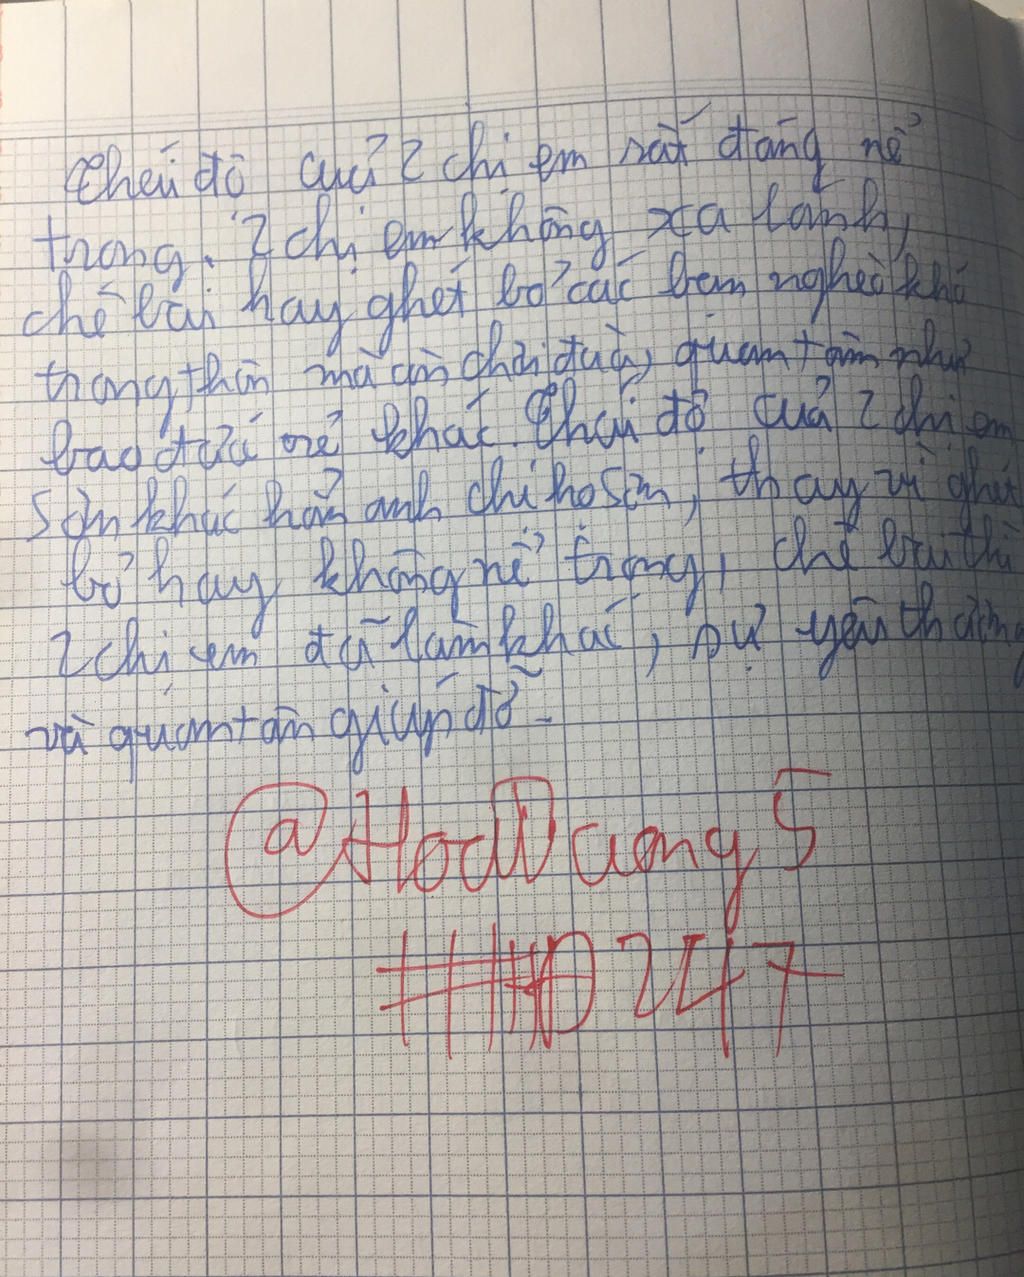 Thái độ của 2 chị em rất đáng nể
trọng. 2 chị em không xa lánh,
chê bai hay ghét bỏ các bạn nghèo khó
trong thôn mà còn chơi đùa, quan tâm như
bao đứa trẻ khác. Thái độ của 2 chị em
Sơn khác hẳn anh chị họ Sơn, thay vì ghét
bỏ hay không nể trọng, chê bai thì
2 chị em đã làm khác, sự yêu thương
và quan tâm giúp đỡ.
@HocDuong5
0247